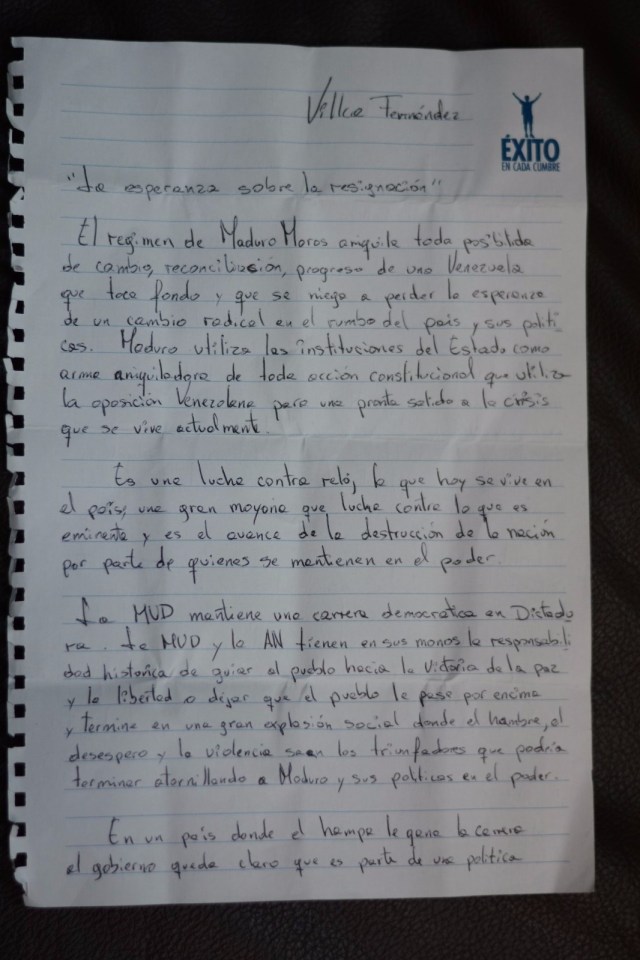 Villca Fernández
ÉXITO
EN CADA CUMBRE
"La esperanza sobre la resignación"
El regimen de Maduro Moros aniquila toda posibilida
de cambio, reconciliación, progreso de una Venezuela
que toca fondo y que se niega a perder la esperanza
de un cambio radical en el rumbo del país y sus politi-
cas. Maduro utiliza las instituciones del Estado como
arma aniquiladora de toda acción constitucional que utiliza
la oposición Venezolana para una pronta salida a la crisis
que se vive actualmente.
Es una lucha contra reloj, lo que hoy se vive en
el país, una gran mayoria que lucha contra lo que es
eminente y es el avance de la destrucción de la nación
por parte de quienes se mantienen en el poder.
La MUD mantiene una carrera democratica en Dictadu
ra. La MUD y la AN tienen en sus manos la responsabili
dad historica de guiar al pueblo hacia la victoria de la paz
y la libertad o dejar que el pueblo le pase por encima
y termine en una gran explosión social donde el hambre, el
desespero y la violencia sean los triunfadores que podria
terminar atornillando a Maduro y sus politicas en el poder.
En un país donde el hampa le gana la carrera
al gobierno queda claro que es parte de una politica